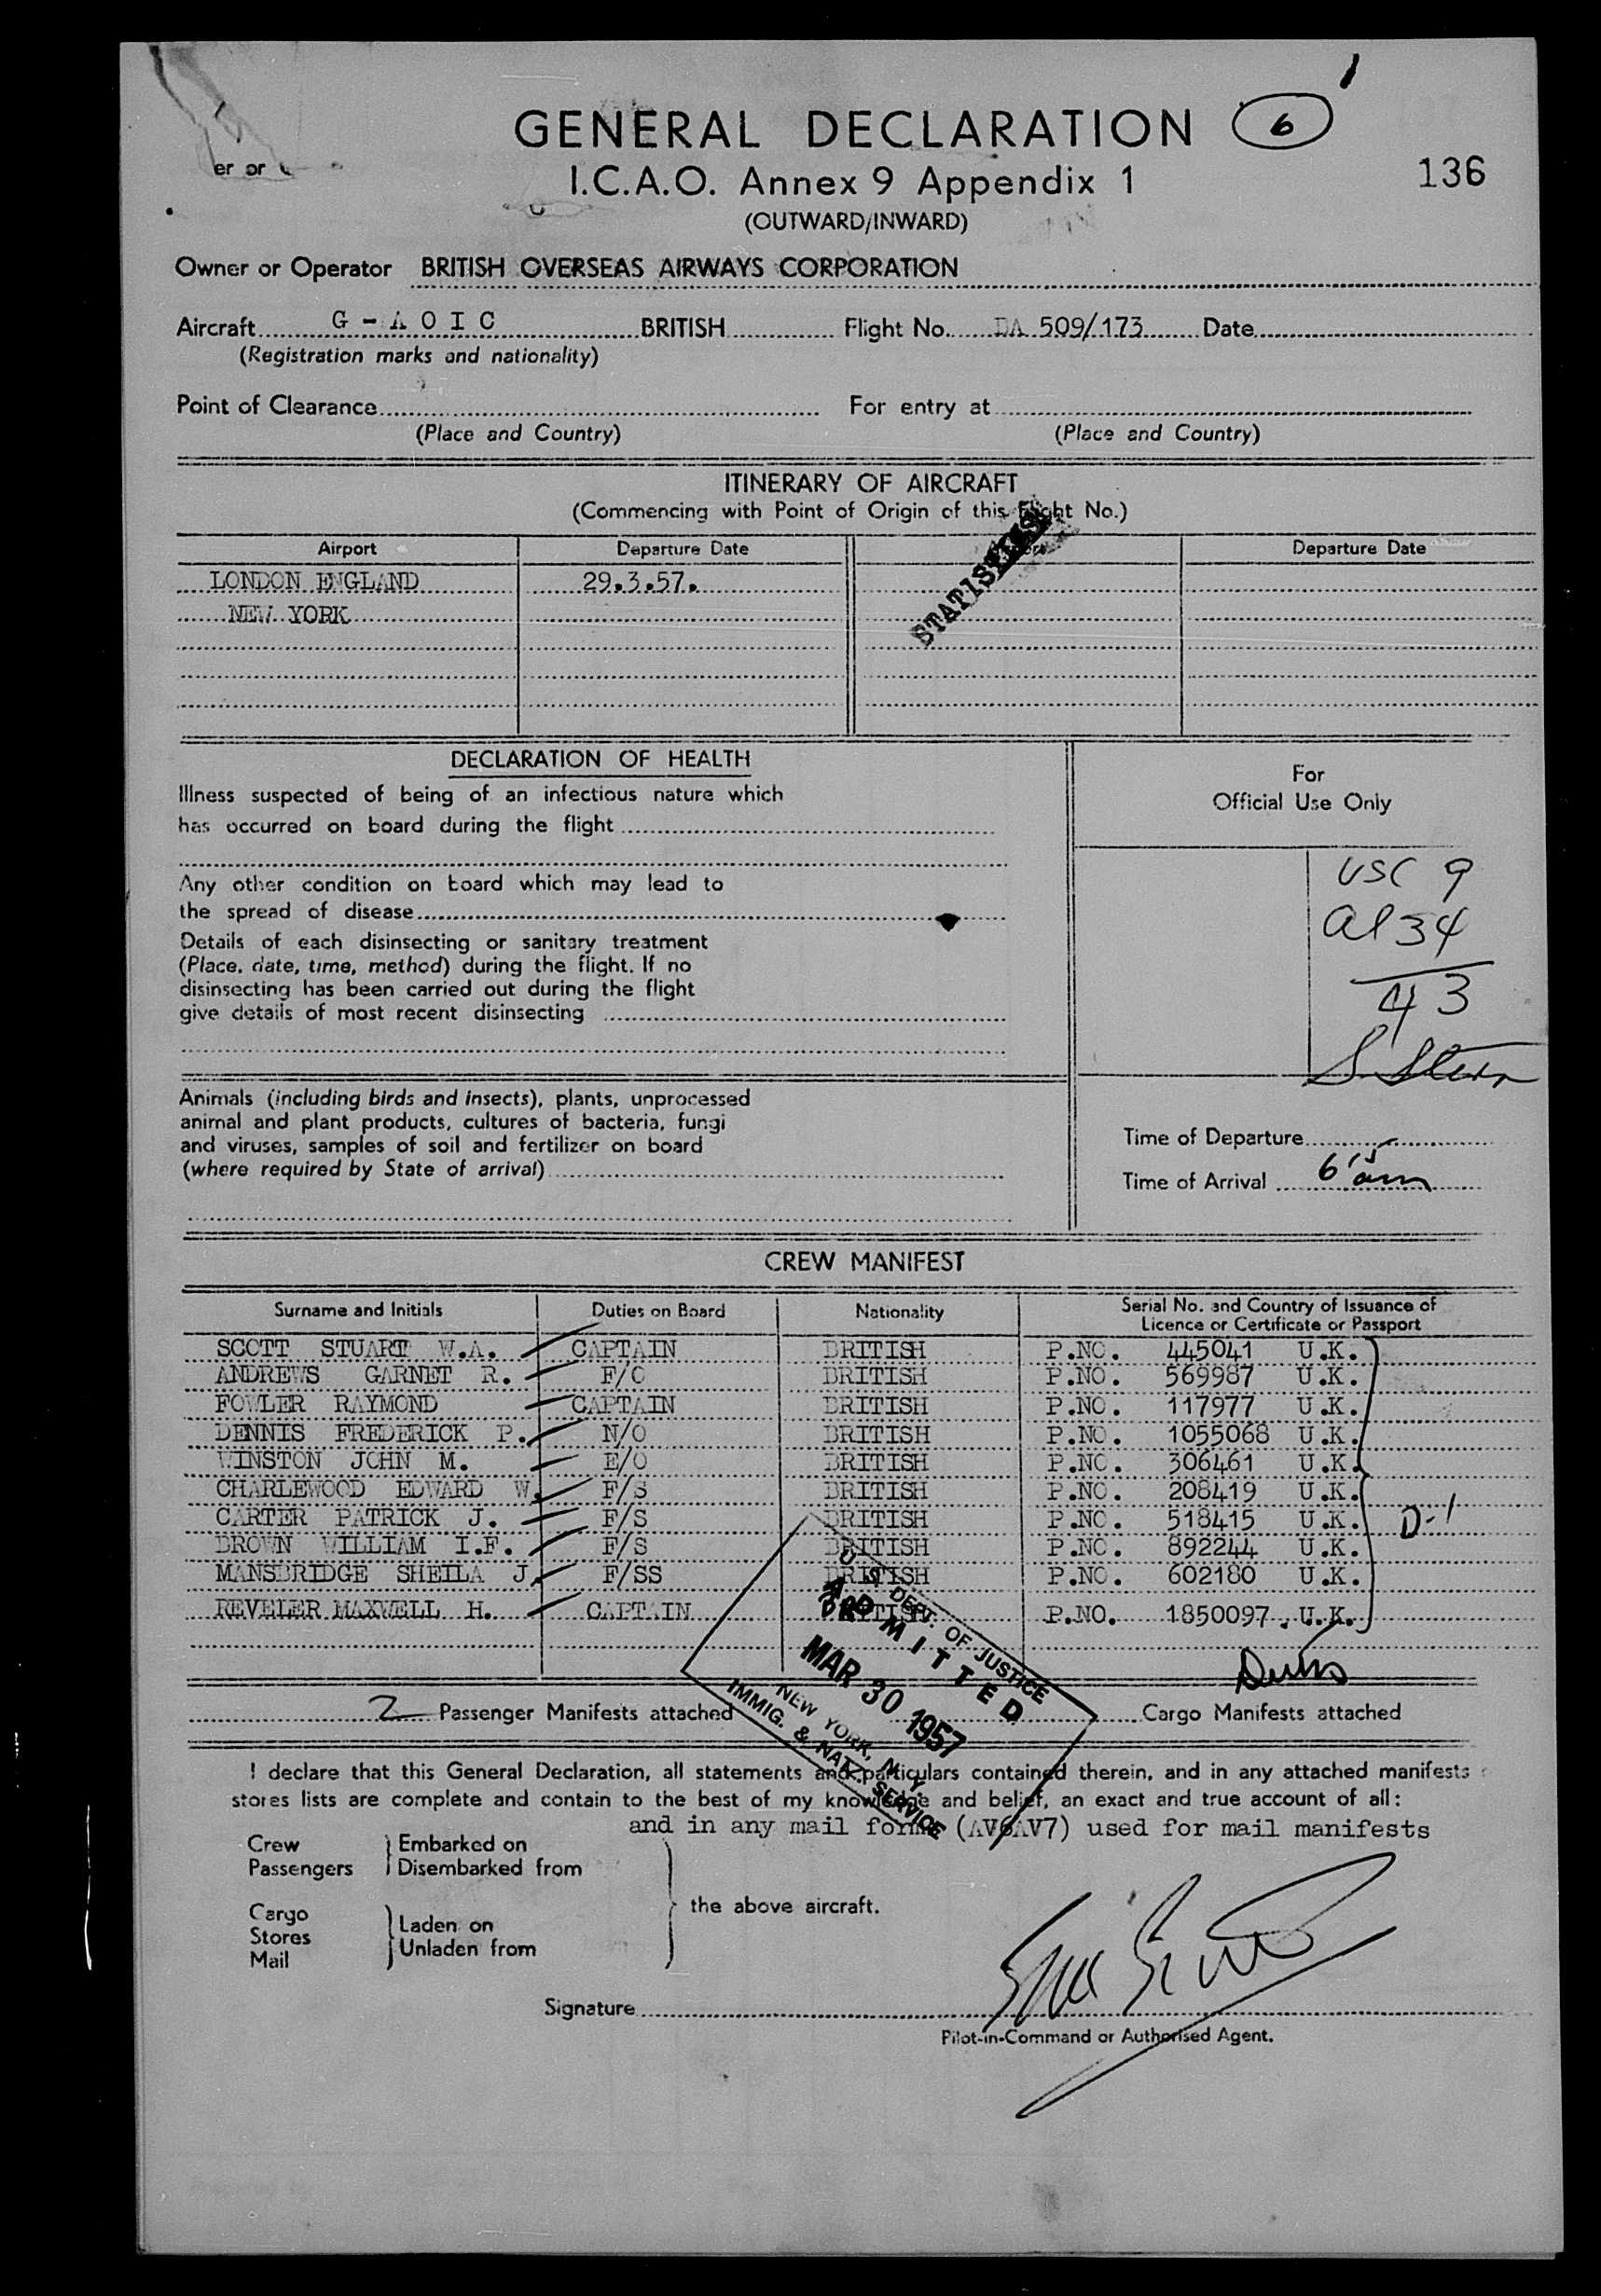 GENERAL DECLARATION 6
er or
I.C.A.O. Annex 9 Appendix 1
136
(OUTWARD/INWARD)
Owner or Operator BRITISH OVERSEAS AIRWAYS CORPORATION
Aircraft G - A O I C BRITISH Flight No. 509/173 Date
(Registration marks and nationality)
Point of Clearance For entry at
(Place and Country) (Place and Country)
ITINERARY OF AIRCRAFT
(Commencing with Point of Origin of this Flight No.)
Airport Departure Date Airport Departure Date
LONDON ENGLAND 29.3.57.
NEW YORK
DECLARATION OF HEALTH
Illness suspected of being of an infectious nature which
has occurred on board during the flight
Any other condition on board which may lead to
the spread of disease
Details of each disinsecting or sanitary treatment
(Place, date, time, method) during the flight. If no
disinsecting has been carried out during the flight
give details of most recent disinsecting
For
Official Use Only
USC 9
al 34
43
S. Stern
Animals (including birds and insects), plants, unprocessed
animal and plant products, cultures of bacteria, fungi
and viruses, samples of soil and fertilizer on board
(where required by State of arrival)
Time of Departure
Time of Arrival 6 15 am
CREW MANIFEST
Surname and Initials Duties on Board Nationality Serial No. and Country of Issuance of
Licence or Certificate or Passport
SCOTT STUART W.A. CAPTAIN BRITISH P.NO. 445041 U.K.
ANDREWS GARNET R. F/O BRITISH P.NO. 569987 U.K.
FOWLER RAYMOND CAPTAIN BRITISH P.NO. 117977 U.K.
DENNIS FREDERICK P. N/O BRITISH P.NO. 1055068 U.K.
WINSTON JOHN M. E/O BRITISH P.NO. 306461 U.K.
CHARLEWOOD EDWARD W. F/S BRITISH P.NO. 208419 U.K.
CARTER PATRICK J. F/S BRITISH P.NO. 518415 U.K. D-1
BROWN WILLIAM I.F. F/S BRITISH P.NO. 892244 U.K.
MANSBRIDGE SHEILA J. F/SS BRITISH P.NO. 602180 U.K.
REVELER MAXWELL H. CAPTAIN BRITISH P.NO. 1850097. U.K.
U.S. DEPT. OF JUSTICE
ADMITTED
MAR 30 1957
NEW YORK, N.Y.
IMMIG. & NATZ. SERVICE
2 Passenger Manifests attached Cargo Manifests attached
I declare that this General Declaration, all statements and particulars contained therein, and in any attached manifests
stores lists are complete and contain to the best of my knowledge and belief, an exact and true account of all:
and in any mail forms (AV6AV7) used for mail manifests
Crew Embarked on
Passengers Disembarked from
the above aircraft.
Cargo
Stores Laden on
Mail Unladen from
Signature
Pilot-in-Command or Authorised Agent.